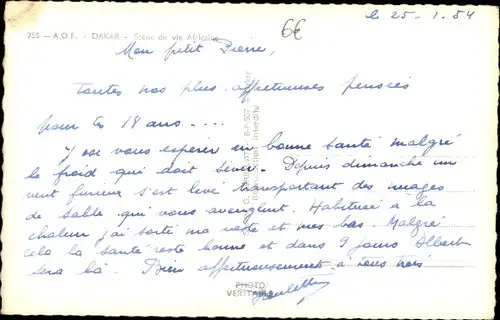 le 25-1.54
6€
255 — A.O.F. - DAKAR - Scène de vie Africaine
Mon petit Pierre,
Toutes nos plus affectueuses pensées
pour tes 18 ans ....
J'ose vous espérer en bonne santé malgré
le froid qui doit sévir. Depuis dimanche un
vent furieux s'est levé transportant des nuages
de sable qui vous aveuglent. Habituée à la
chaleur j'ai sorti ma veste et mes bas. Malgré
cela la santé reste bonne et dans 9 jours Albert
sera là. Bien affectueusement à tous trois
PHOTO
VERITABLE